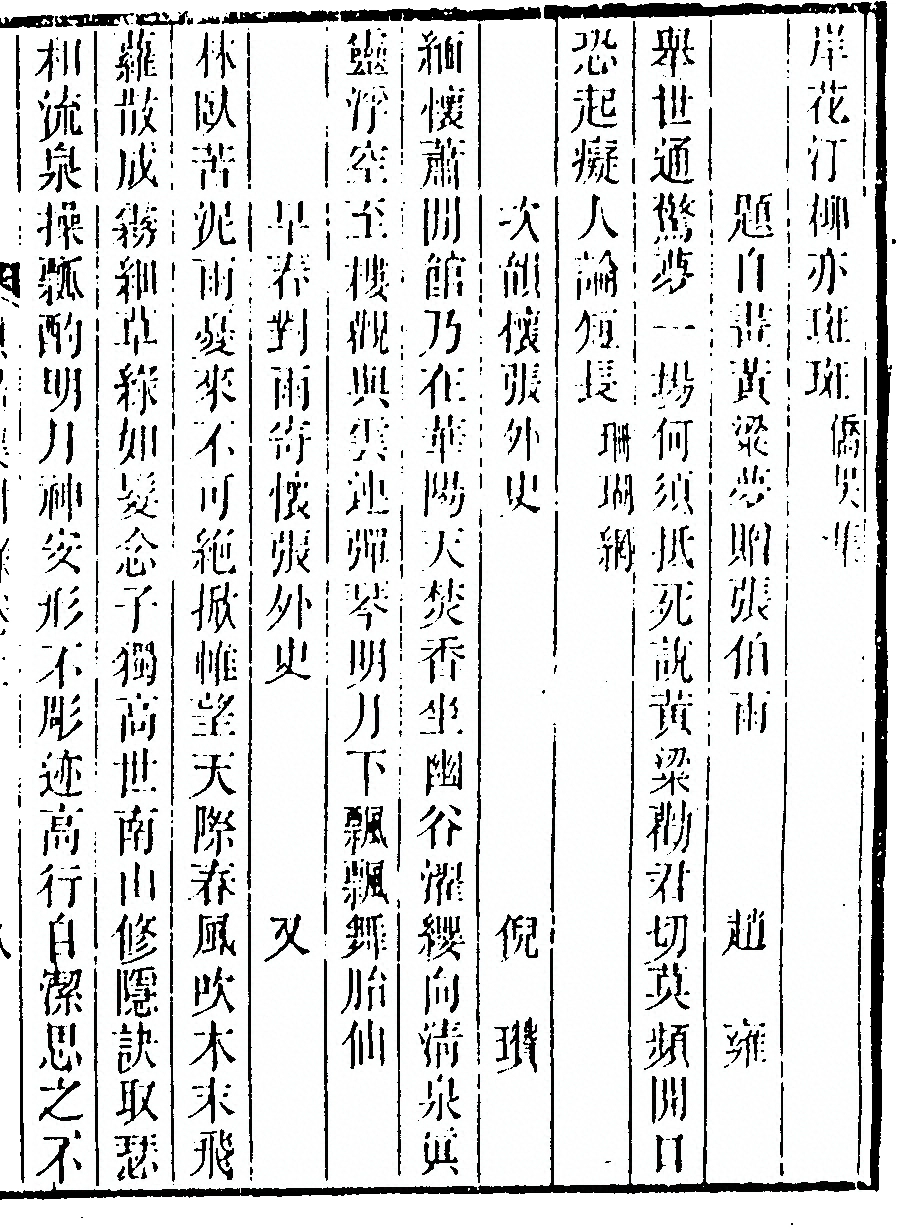 岸花汀柳亦斑斑 僑吳集
題自畫黃粱夢贈張伯雨 趙雍
舉世通驚夢一場何須抵死說黃粱勸君切莫頻開口
恐起癡人論短長 珊瑚網
次韻懷張外史 倪瓚
緬懷蕭閒館乃在華陽天焚香坐幽谷濯纓向清泉真
靈浮空至樓觀與雲連彈琴明月下飄飄舞胎仙
早春對雨寄懷張外史 又
林臥苦泥雨憂來不可絕掀帷望天際春風吹木末飛
蘿散成霧細草綠如髮念子獨高世南山修隱訣取瑟
和流泉操瓢酌明月神安形不彫迹高行自潔思之不